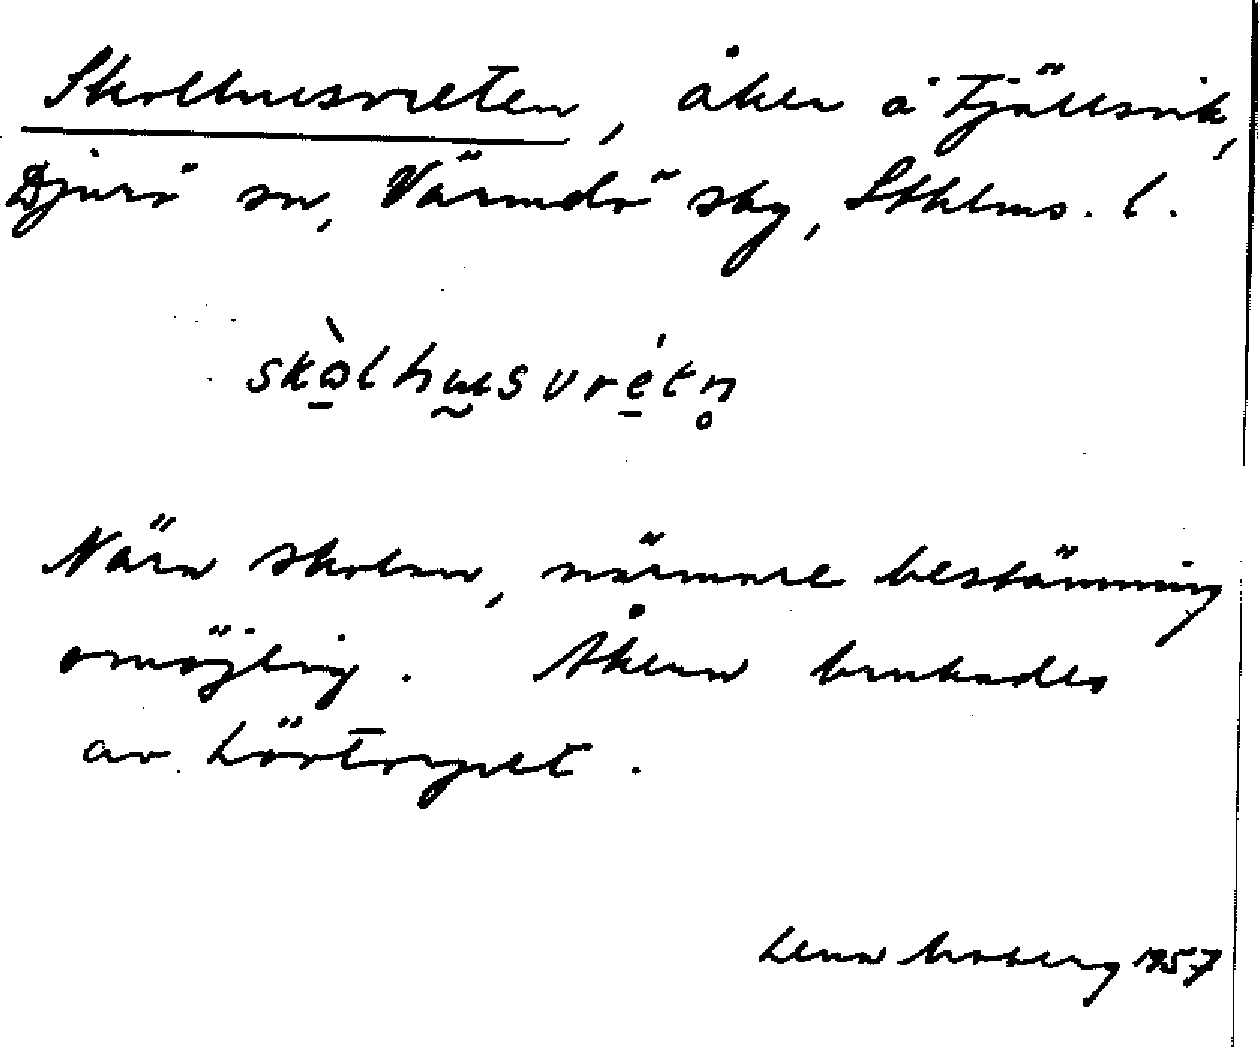 Skolhusvreten, åker å Tjällsvik,
Djurö sn, Värmdö skg, Sthlms. l.
skòlhusvrétn̥
Nära skolan, närmare bestämning
omöjlig. Åkern brukades
av Lövtorpet.
Lena Moberg 1957